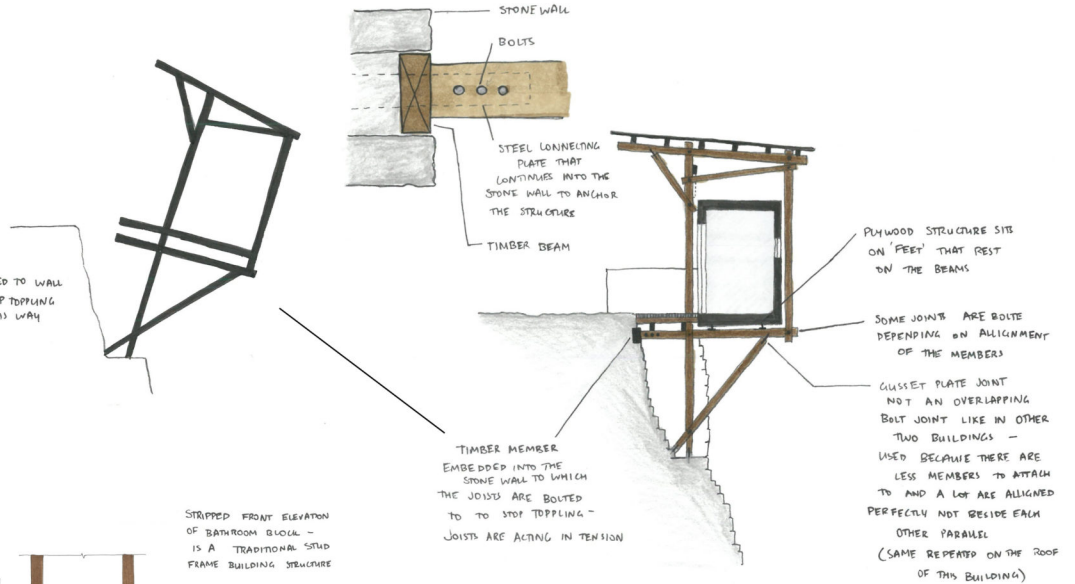 STONE WALL
BOLTS
STEEL CONNECTING
PLATE THAT
CONTINUES INTO THE
STONE WALL TO ANCHOR
THE STRUCTURE
TIMBER BEAM
ED TO WALL
P TOPPLING
IS WAY
PLYWOOD STRUCTURE SITS
ON 'FEET' THAT REST
ON THE BEAMS
SOME JOINTS ARE BOLTE
DEPENDING ON ALLIGNMENT
OF THE MEMBERS
GUSSET PLATE JOINT
NOT AN OVERLAPPING
BOLT JOINT LIKE IN OTHER
TWO BUILDINGS -
USED BECAUSE THERE ARE
LESS MEMBERS TO ATTACH
TO AND A LOT ARE ALLIGNED
PERFECTLY NOT BESIDE EACH
OTHER PARALLEL
(SAME REPEATED ON THE ROOF
OF THIS BUILDING)
TIMBER MEMBER
EMBEDDED INTO THE
STONE WALL TO WHICH
THE JOISTS ARE BOLTED
TO TO STOP TOPPLING -
JOISTS ARE ACTING IN TENSION
STRIPPED FRONT ELEVATION
OF BATHROOM BLOCK -
IS A TRADITIONAL STUD
FRAME BUILDING STRUCTURE